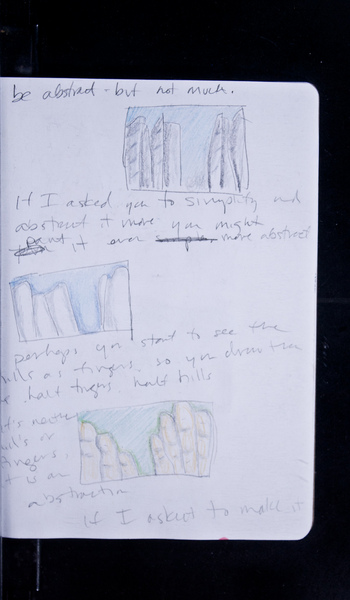 be abstract - but not much.
If I asked you to simplify and
abstract it more you might
paint it even simpler more abstract
perhaps you start to see the
hills as fingers so you draw them
half fingers half hills
it's neither
hills or
fingers.
it is an
abstraction
if I asked to make it